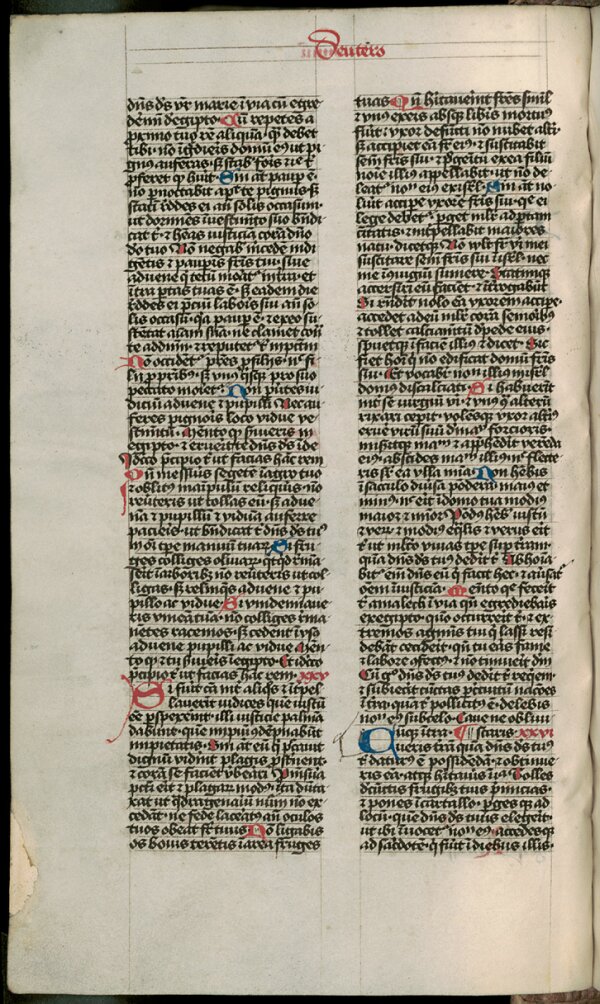 Deutero
dns ds vr marie i via cu egre
demi degipto Cu repetes a
pximo tuo re aliqua q debet
tibi no igdiers domu eius ut pi
gnus auferas s stab fois et
pferet q huit Sin at paup e
no pnoctabit ap te pignus s
stati reddes ei an solis occasum
ut dormies i vestimto suo bndi
cat t et heas iusticia cora dno
do tuo No negab mcede indi
getis et paupis fris tui siue
aduene q tecu morat in tra et
itra ptas tuas e s eadem die
reddes ei pciu labois sui an so
lis occasu qa paup e et ex eo su
stetat aiam sua ne clamet con
te ad dnm et reputet t in pctm
No occidet pres p filiis nec fi
lii p pribus s vnusqsq pro suo
peccato moriet Non puertes iu
diciu aduene et pupilli nec au
feres pignois loco vidue ve
stimtu Meto q suieris in
egypto et eruerit te dns ds ide
Idcirco pcipio t ut facias hac rem
Qn messuis segete i agro tuo
et oblitus manipulu reliquis no
reuteris ut tollas eu s adue
na et pupillu et vidua auferre
pacieis ut bndicat t dns ds tuus
in oi ope manuu tuar Si fru
ges colliges oliuar qcqd rema
serit i arboribus no reuteris ut col
ligas s relinqs aduene et pu
pillo ac vidue Si vindemiaue
ris vinea tua no colliges rma
netes racemos s cedent i vso
aduene pupilli ac vidue Men
to q et tu suieis i egipto et idcirco
pcipio t ut facias hac rem xxv
Si fuit ca int aliqs et itpel
lauerit iudices que iustu
ee pspexerint illi iusticie palma
dabunt que impiu gdepnabunt
impietatis Sin at eu q pccauit
dignu viderint plagis psternent
et cora se faciet vberari p msura
pcti erit et plagar modus ita duta
xat ut qdragenariu num no ex
cedat ne fede laceratus an oculos
tuos abeat fr tuus No ligabis
os bouis teretis i area fruges
tuas Qn hitauerint fres siml
et vnus ex eis absq libis mortuus
fuit vxor defuncti no nubet alti
s accipiet ea fr eius et suscitabit
sem fris sui et pgenitu ex ea filiu
noie illius appellabit ut no de
leat nomen eius ex isrl Sin at no
luit accipe vxore fris sui q ei
lege debet pget mlr ad porta
ciuitatis et intpellabit maiores
natu dicetq No vlt fr viri mei
suscitare sem fris sui i isrl nec
me i iugiu sumere Statimq
accersiri eu faciet et itrogabut
Si rndit nolo ea vxorem accipe
accedet ad eu mlr cora seniorib
et tollet calciamtu de pede eius
spuetq i facie illius et dicet Sic
fiet hoi q no edificat domu fris
sui Et vocabit nomen illius i isrl
domus discalciati Si habuerint
int se iurgiu viri et vnus q alteru
rixari cepit volesq vxor altius
eruere viru suu de manu forcioris
miseritq manu et apphedit vereda
eius abscides manu illius nec flecte
ris sr ea vlla mia Non hebis
i sacculo diusa podera maius et
minus nec erit i domo tua modius
maior et minor Podus hes iustu
et veru et modius eqlis et verus erit
t ut mlto viuas tpe sup tram
qua dns ds tuus dedit t Abhoia
bit eni dns eu q facit hec et auersat
oem iusticia Meto que fecerit
t amalech i via qn egrediebaris
ex egipto quo occurrerit t et ex
tremos agminis tui q lassi resi
debat ceciderit qn tu eas fame
et labore afectus et no timuerit dm
Cu g dns ds tuus dedit t reqem
et subiecit cuctas p circuitu nacoes
i tra qua t pollicitus e delebis
nomen eius sub celo Caue ne obliui
Cuq itra scaris xxvi
ueris tra qua dns ds tuus
t daturus e possideda et obtinue
ris ea atq hitauis i ea Tolles
de cuctis frugibus tuis primicias
et pones i cartallo pgesq ad
locu que dns ds tuus elegerit
ut ibi iuocet nomen eius accedesq
ad sacdote q fuit i diebus illis